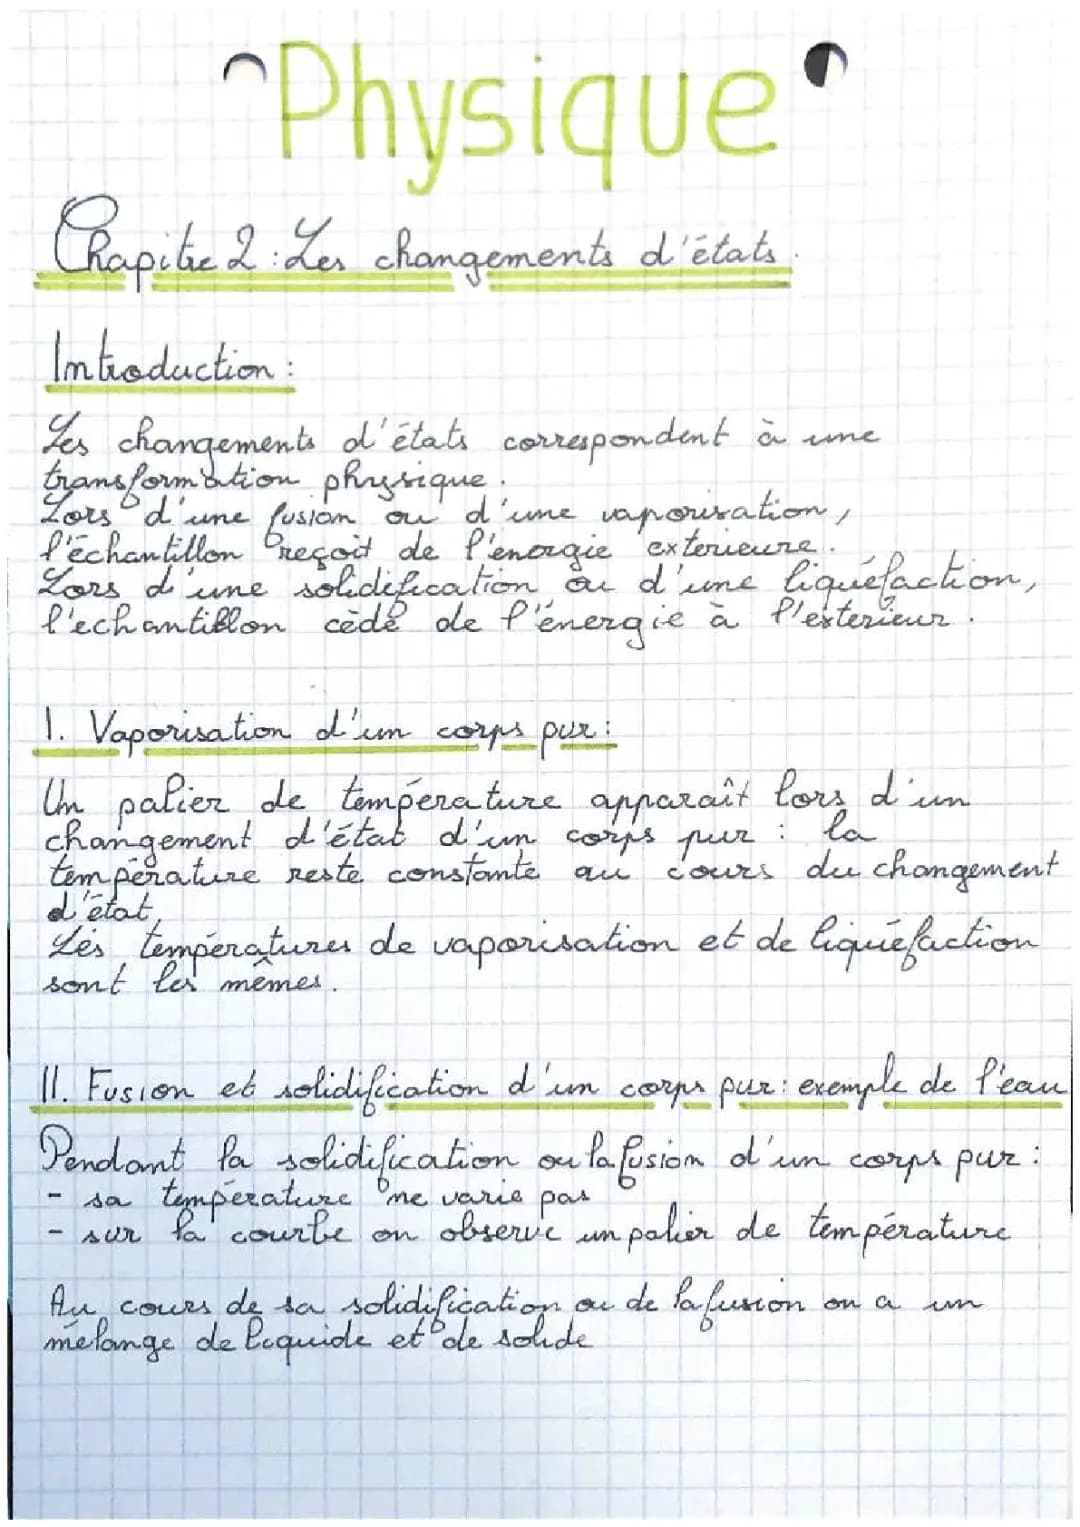 Physique
Chapitre 2 : Les changements d'états.
Introduction :
Les changements d'états correspondent à une
transformation physique.
Lors d'une fusion ou d'une vaporisation,
l'échantillon reçoit de l'énergie exterieure.
Lors d'une solidification ou d'une liquéfaction,
l'echantillon cède de l'énergie à l'exterieur.
I. Vaporisation d'un corps pur :
Un palier de température apparaît lors d'un
changement d'état d'un corps pur : la
température reste constante au cours du changement
d'état.
Les températures de vaporisation et de liquéfaction
sont les mêmes.
II. Fusion et solidification d'un corps pur : exemple de l'eau
Pendant la solidification ou la fusion d'un corps pur :
- sa température ne varie pas
- sur la courbe on observe un palier de température
Au cours de sa solidification ou de la fusion on a un
mélange de liquide et de solide